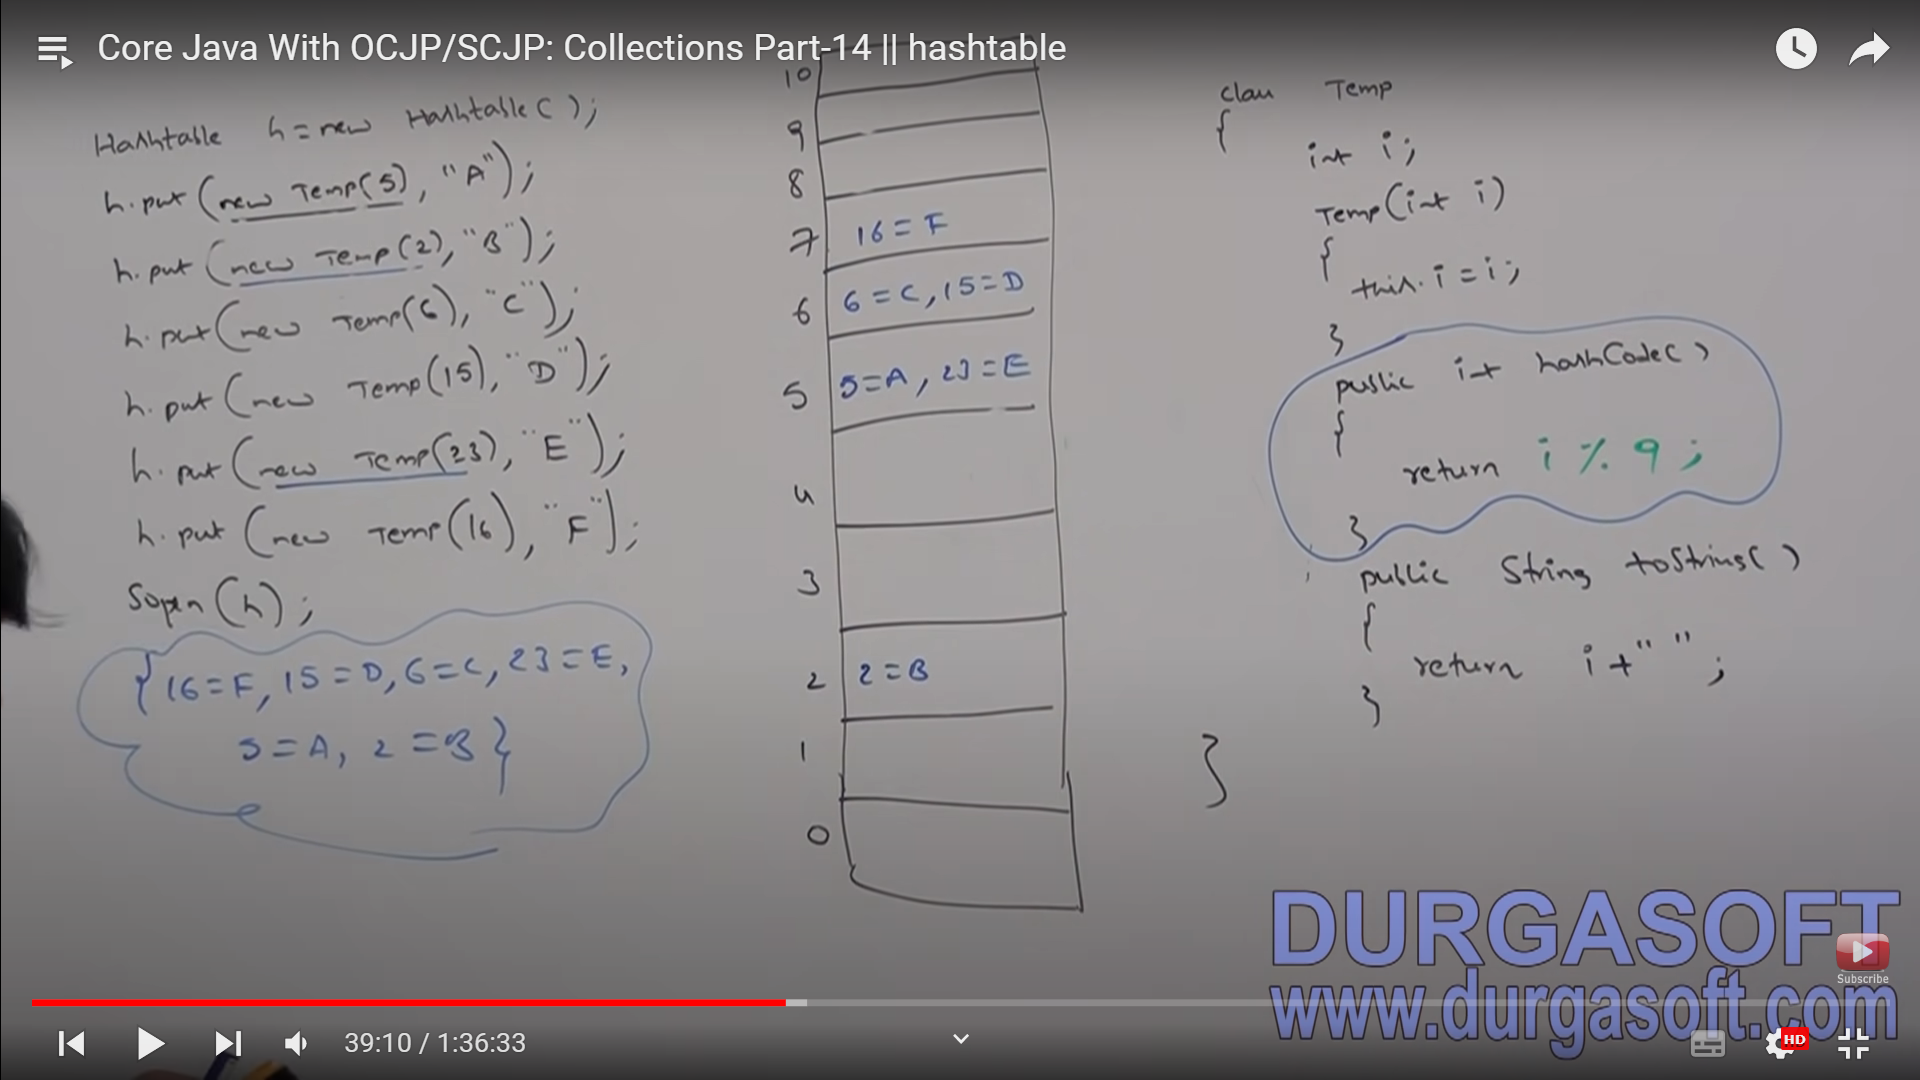 Core Java With OCJP/SCJP: Collections Part-14 || hashtable
Hashtable h = new Hashtable( );
h.put (new Temp(5), "A");
h.put (new Temp(2), "B");
h.put (new Temp(6), "C");
h.put (new Temp(15), "D");
h.put (new Temp(23), "E");
h.put (new Temp(16), "F");
Sopln (h);
{16=F, 15=D, 6=C, 23=E,
5=A, 2=B}
10
9
8
7 16=F
6 6=C, 15=D
5 5=A, 23=E
4
3
2 2=B
1
0
class Temp
{
int i;
Temp(int i)
{
this.i = i;
}
public int hashCode( )
{
return i % 9;
}
public String toString( )
{
return i + " ";
}
}
DURGASOFT
www.durgasoft.com
Subscribe
39:10 / 1:36:33
HD